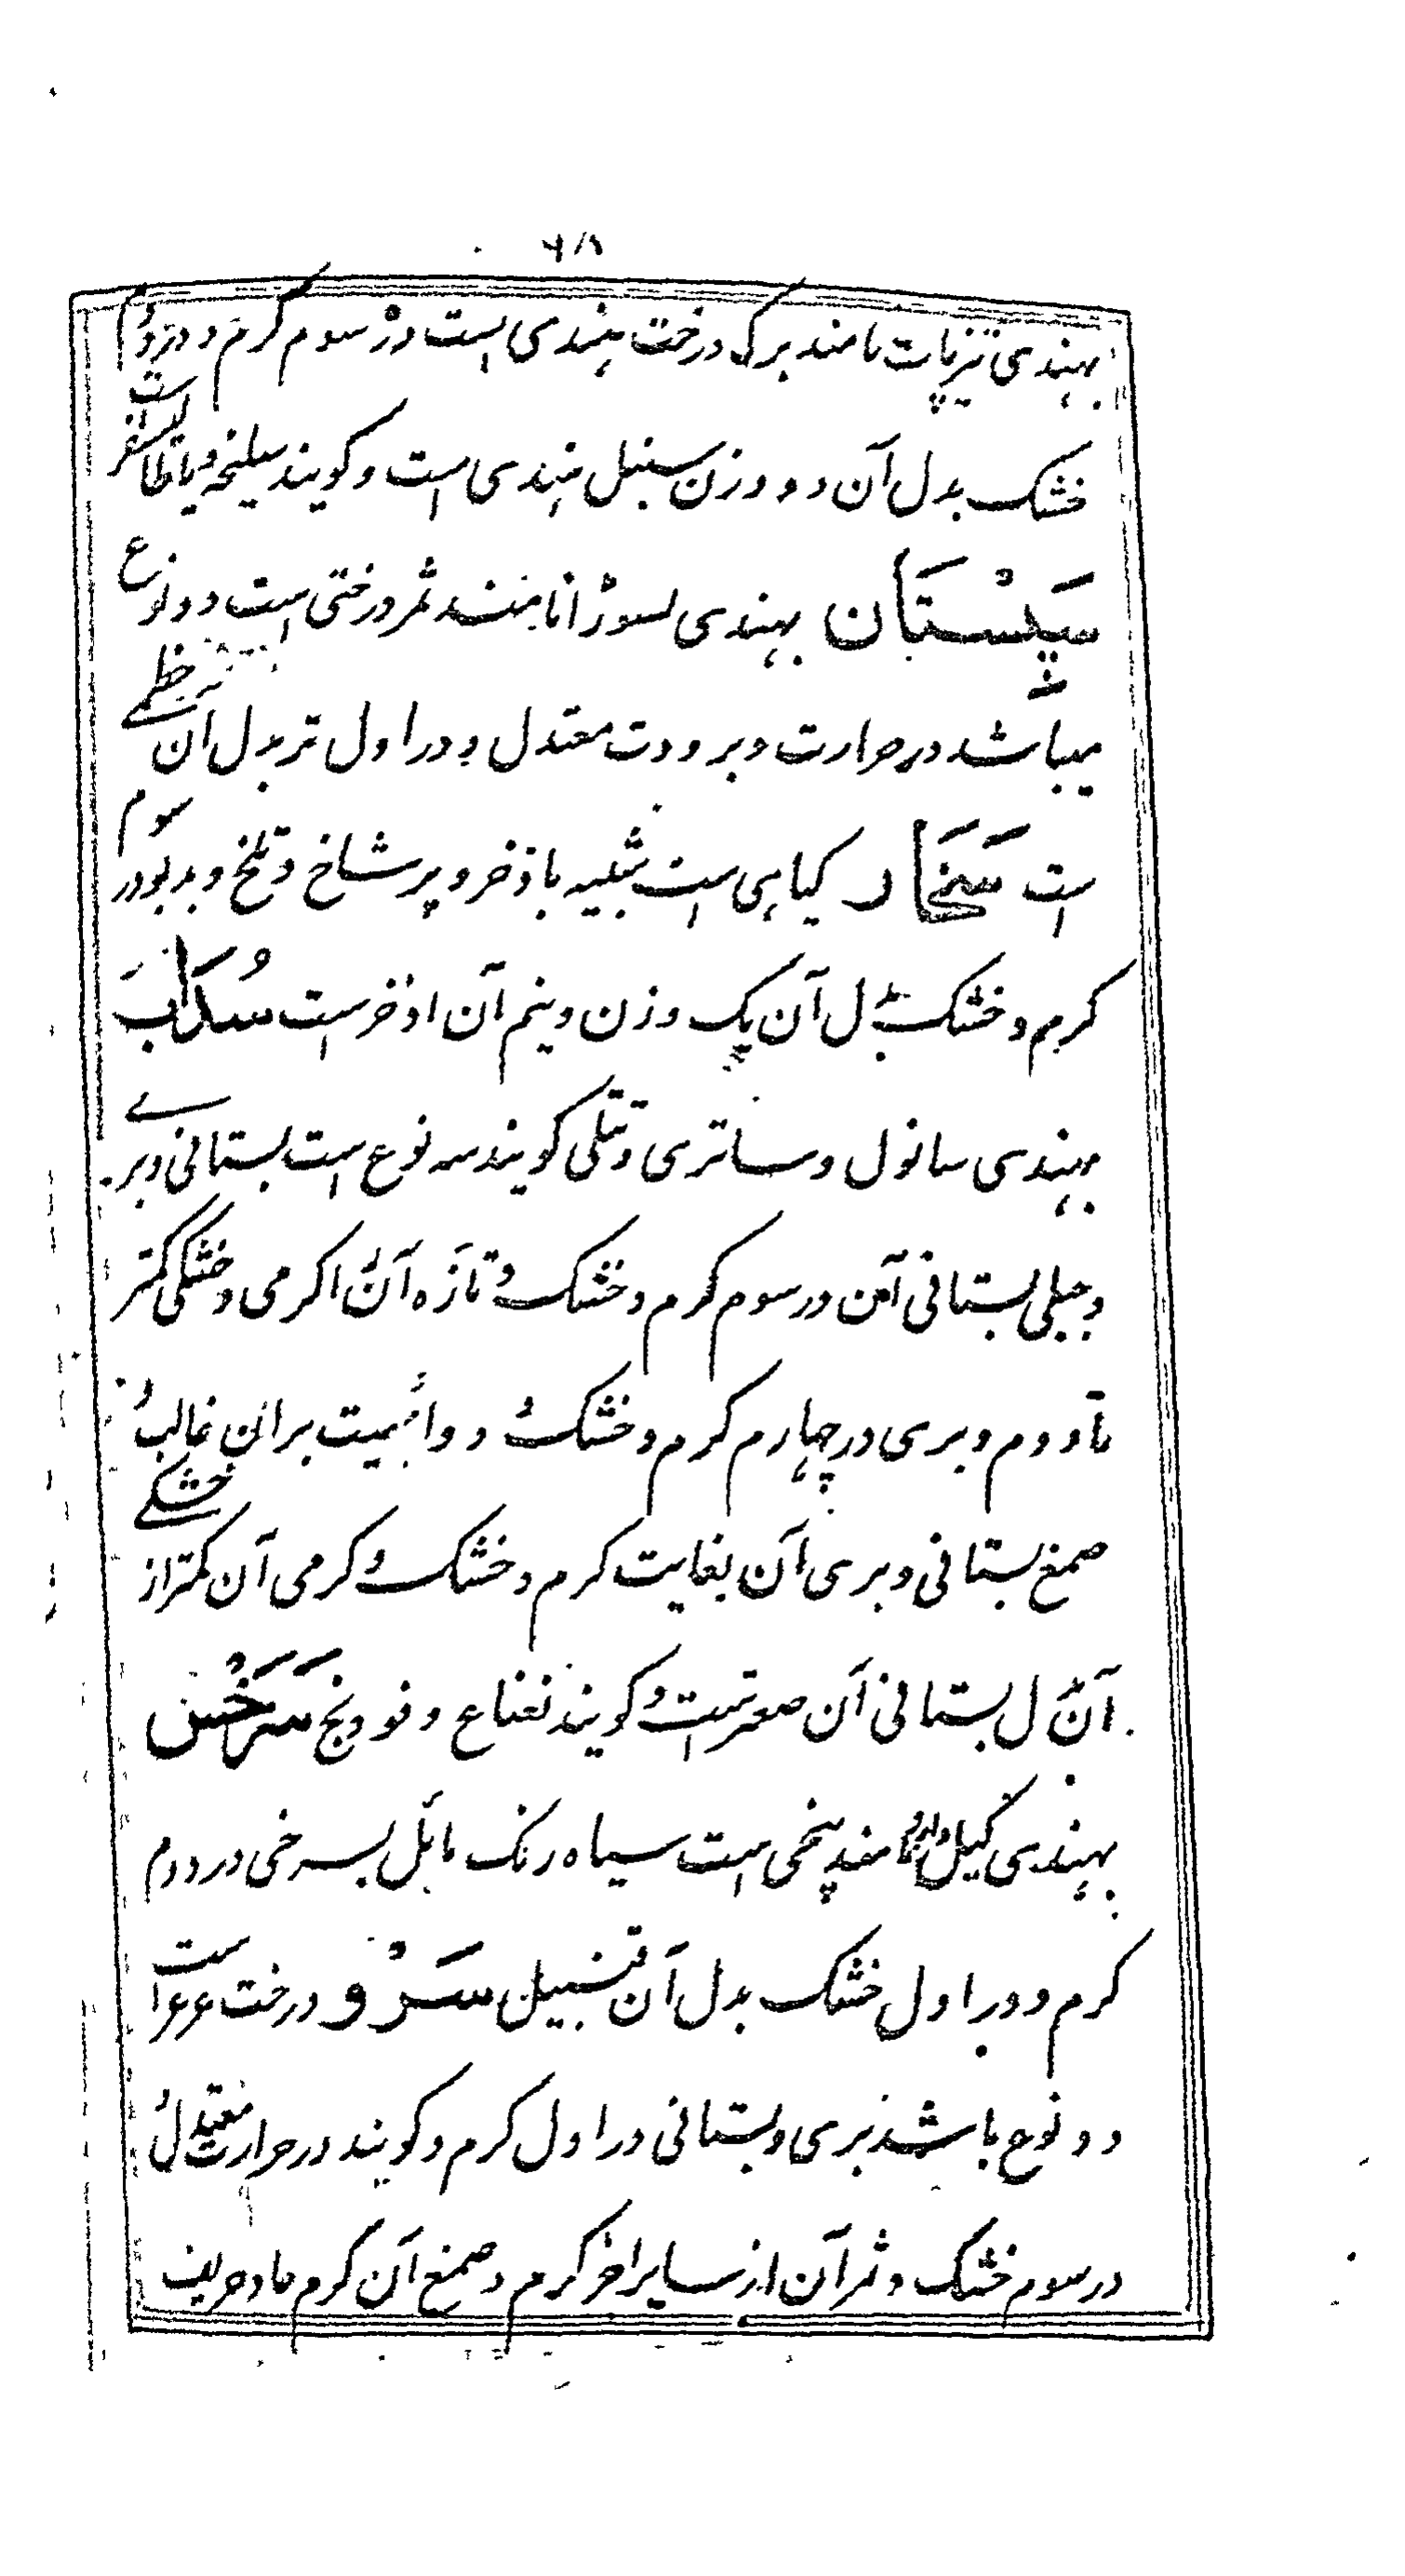 ۶۸
بهندی تیزپات نامند برگ درخت هندی است در سوم گرم و در دوم
خشک بدل آن دو وزن سنبل هندی است و گویند سلیخه و یا طالیسفر است
سپستان بهندی لسوڑا نامند ثمر درختی است دو نوع
میباشد در حرارت و برودت معتدل و در اول تر بدل آن خطمی
است سخار گیاهی است شبیه باذخر و پر شاخ و تلخ و بدبو در سوم
گرم و خشک بدل آن یک وزن و نیم آن اذخر است سداب
بهندی سانول و ساتری و تتلی گویند سه نوع است بستانی و بری
و جبلی بستانی آن در سوم گرم و خشک و تازه آن را گرمی و خشکی کمتر
تا دوم و بری در چهارم گرم و خشک و دوائیت بر آن غالب و
صمغ بستانی و بری آن بغایت گرم و خشک و گرمی آن کمتر از خشکی
آن بدل بستانی آن صعتر است و گویند نعناع و فودنج سرخس
بهندی کیل دارو نامند بیخی است سیاه رنگ مائل بسرخی در دوم
گرم و در اول خشک بدل آن قنبیل سرو درخت عرعر است
دو نوع باشد بری و بستانی در اول گرم و گویند در حرارت معتدل و
در سوم خشک و ثمر آن از سایر اجزا گرم و صمغ آن گرم حاد حریف